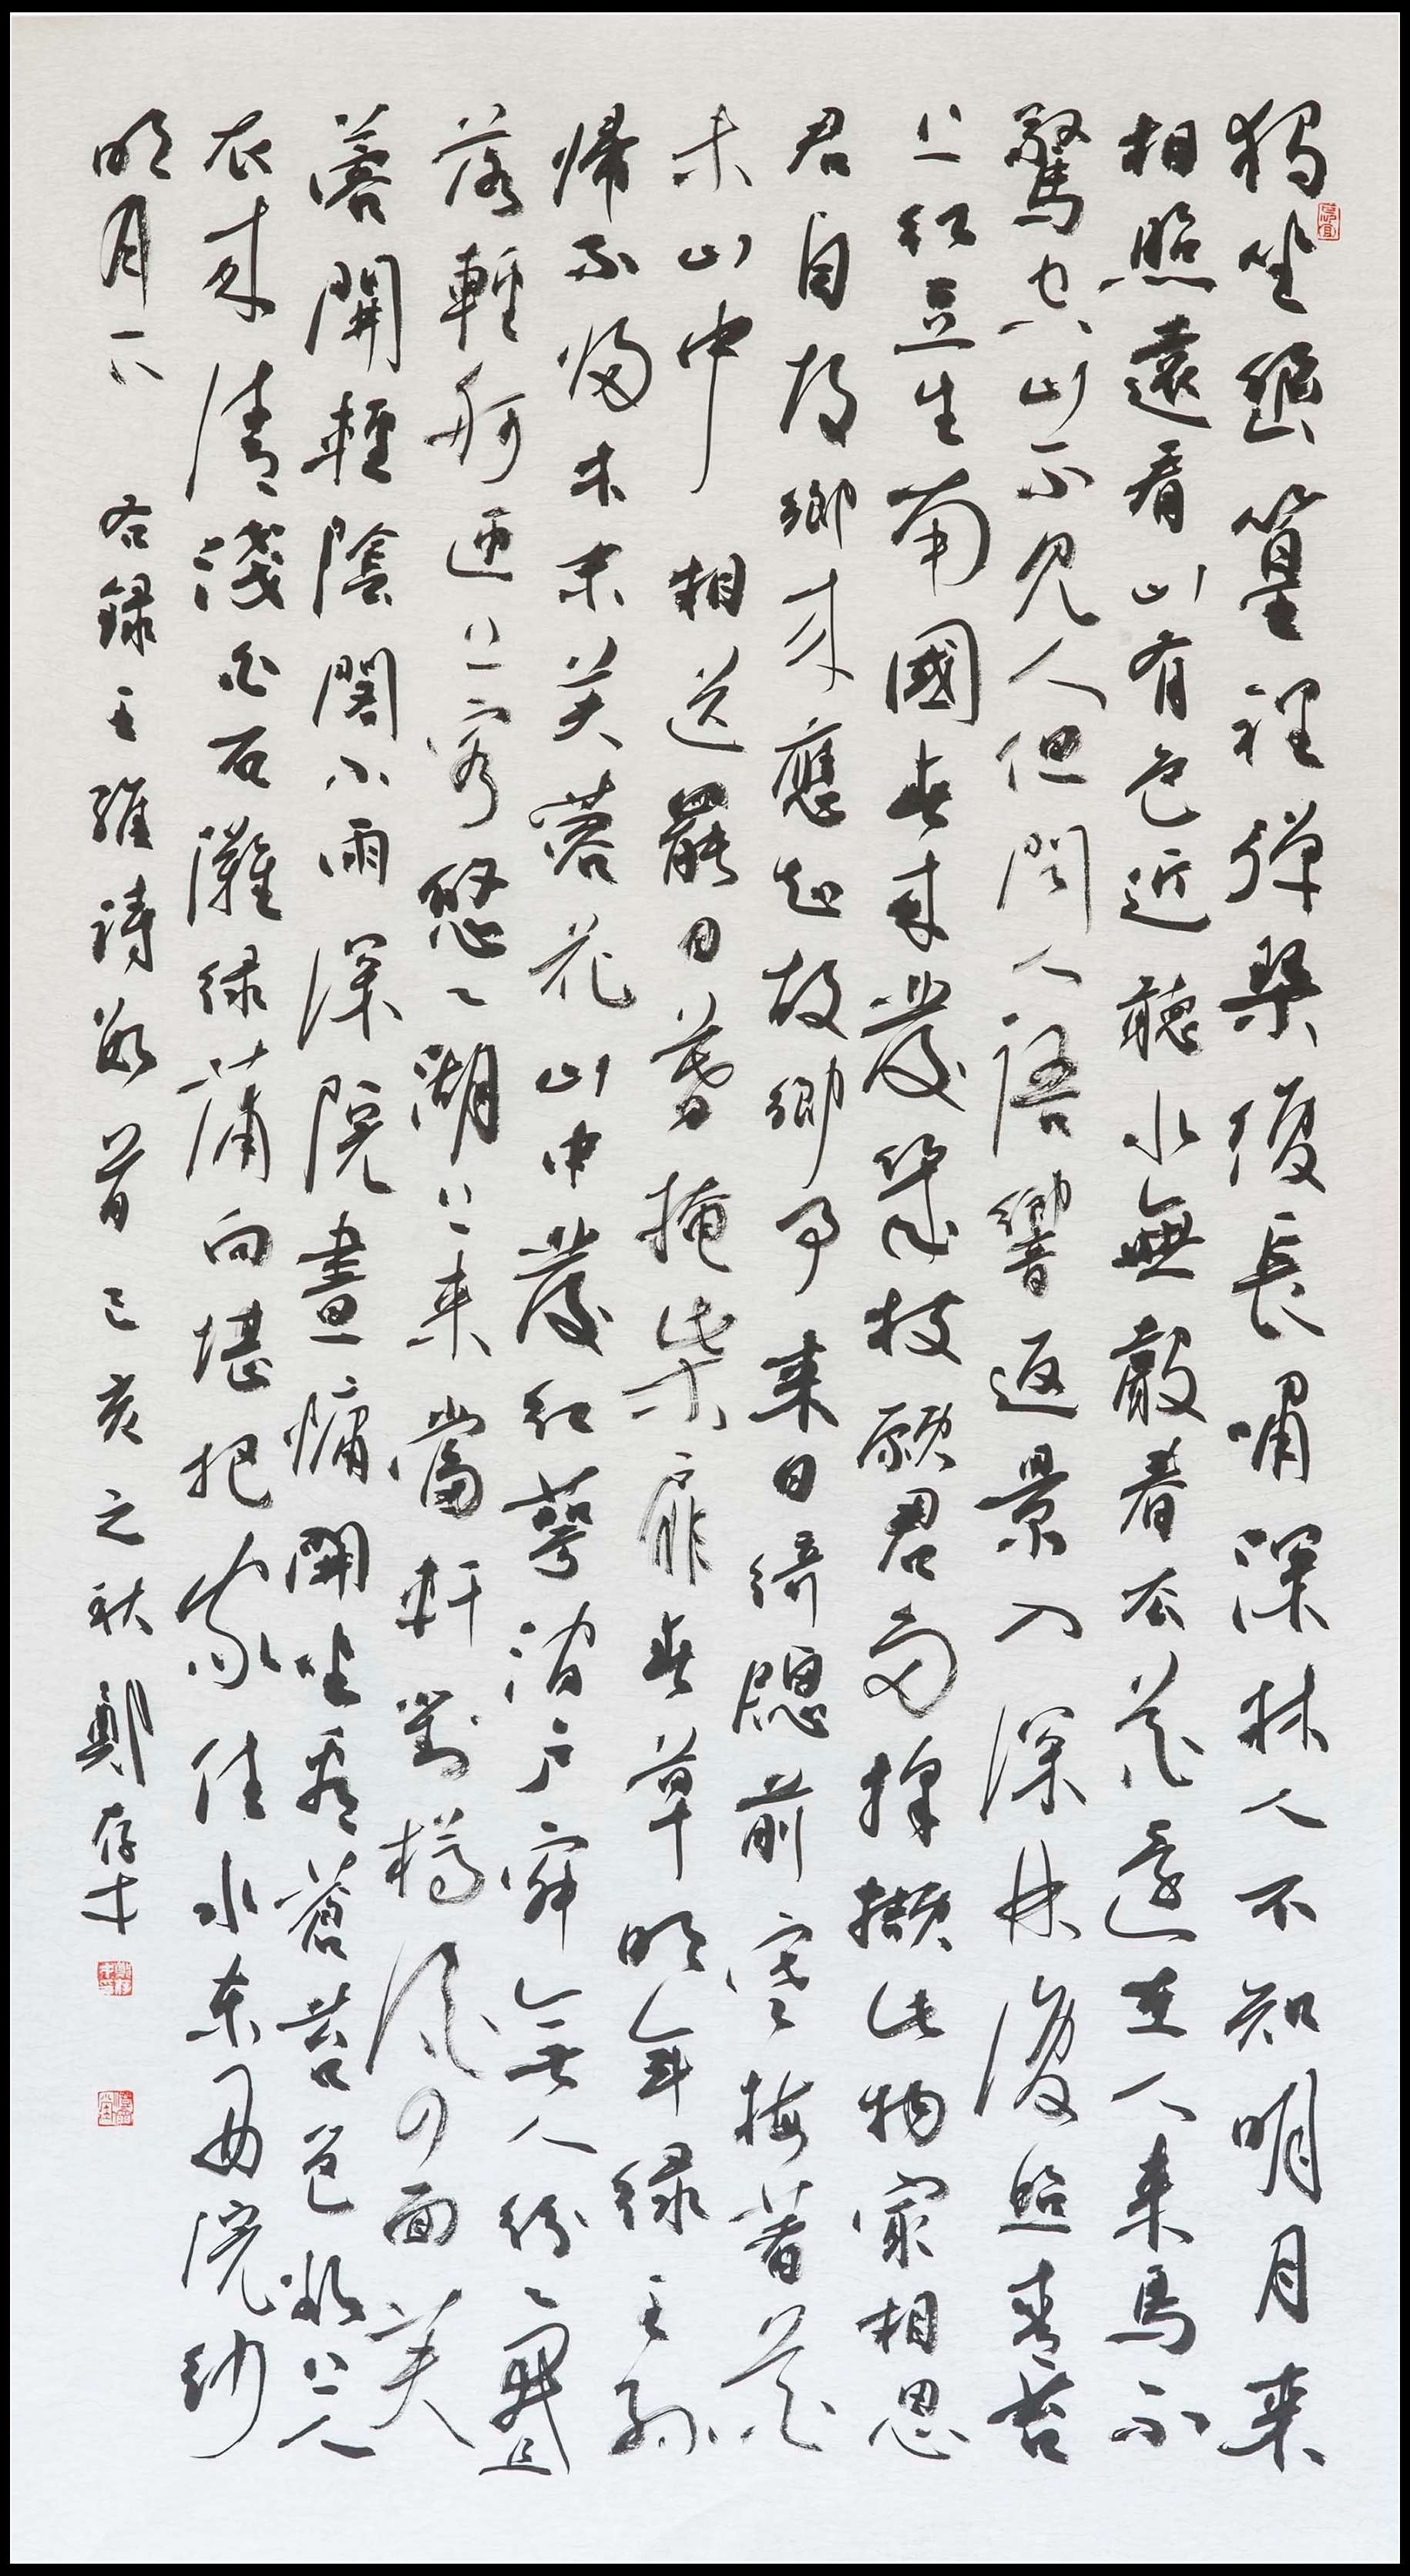 獨坐幽篁裡彈琴復長嘯深林人不知明月來
相照遠看山有色近聽水無聲春去花還在人來鳥不
驚空山不見人但聞人語響返景入深林復照青苔
上紅豆生南國春來發幾枝願君多採擷此物最相思
君自故鄉來應知故鄉事來日綺牕前寒梅著花
未山中相送罷日暮掩柴扉春草明年綠王孫
歸不歸木末芙蓉花山中發紅萼澗戶寂無人紛々開且
落輕舸迎上客悠々湖上來當軒對樽酒四面芙
蓉開輕陰閣小雨深院晝慵開坐看蒼苔色欲上人
衣來清淺白石灘綠蒲向堪把家住水東西浣紗
明月下 右錄王維詩數首己亥之秋鄭存才